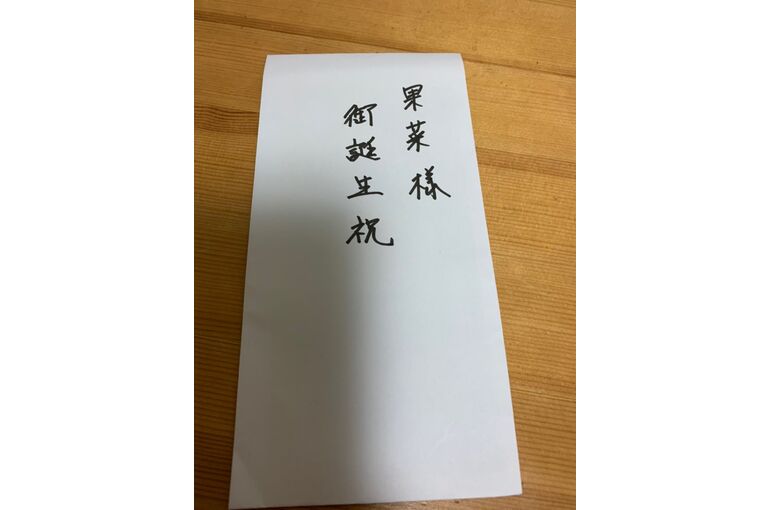 果菜様
御誕生祝